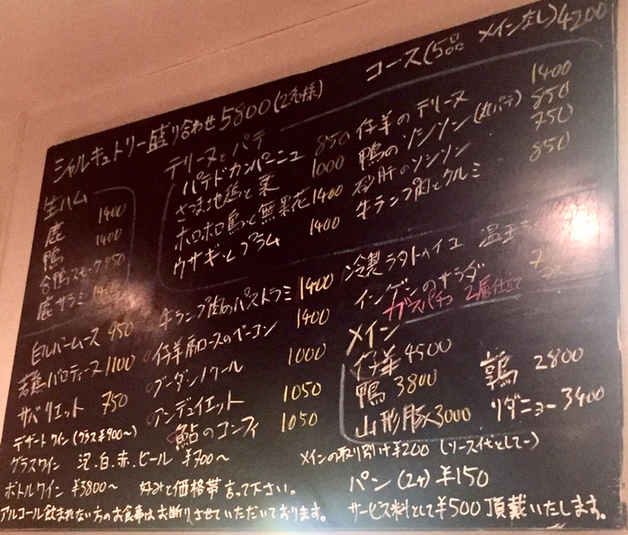 コース(5品 メインなし)4200
シャルキュトリー盛り合わせ 5800(2名様)
生ハム
鹿 1400
鴨 1400
合鴨スモーク 950
鹿サラミ
テリーヌとパテ
パテドカンパーニュ 850
さつま地鶏と栗 1000
ホロホロ鳥と無花果 1400
ウサギとプラム 1400
仔羊のテリーヌ 1400
鴨のソシソン 850
砂肝のソシソン 750
牛ランプ肉とクルミ 850
白レバームース 950
若鶏バロティーヌ 1100
サバリエット 750
デザートワイン(グラス¥900〜)
グラスワイン 泡.白.赤.ビール ¥700〜
ボトルワイン ¥3800〜 好みと価格帯言って下さい。
アルコール飲まれない方のお食事はお断りさせていただいております。
牛ランプ肉のパストラミ 1400
仔羊肩ロースのベーコン 1400
ブーダンノワール 1000
アンデュイエット 1050
鮎のコンフィ 1050
冷製ラタトゥイユ 温玉
インゲンのサラダ
ガスパチョ 2層仕立て
メイン
仔羊 4500
鴨 3800
山形豚 3000
鶉 2800
リダニョー 3400
メインの取り分け ¥200 (ソース代として)
パン(2ヶ) ¥150
サービス料として¥500 頂戴いたします。